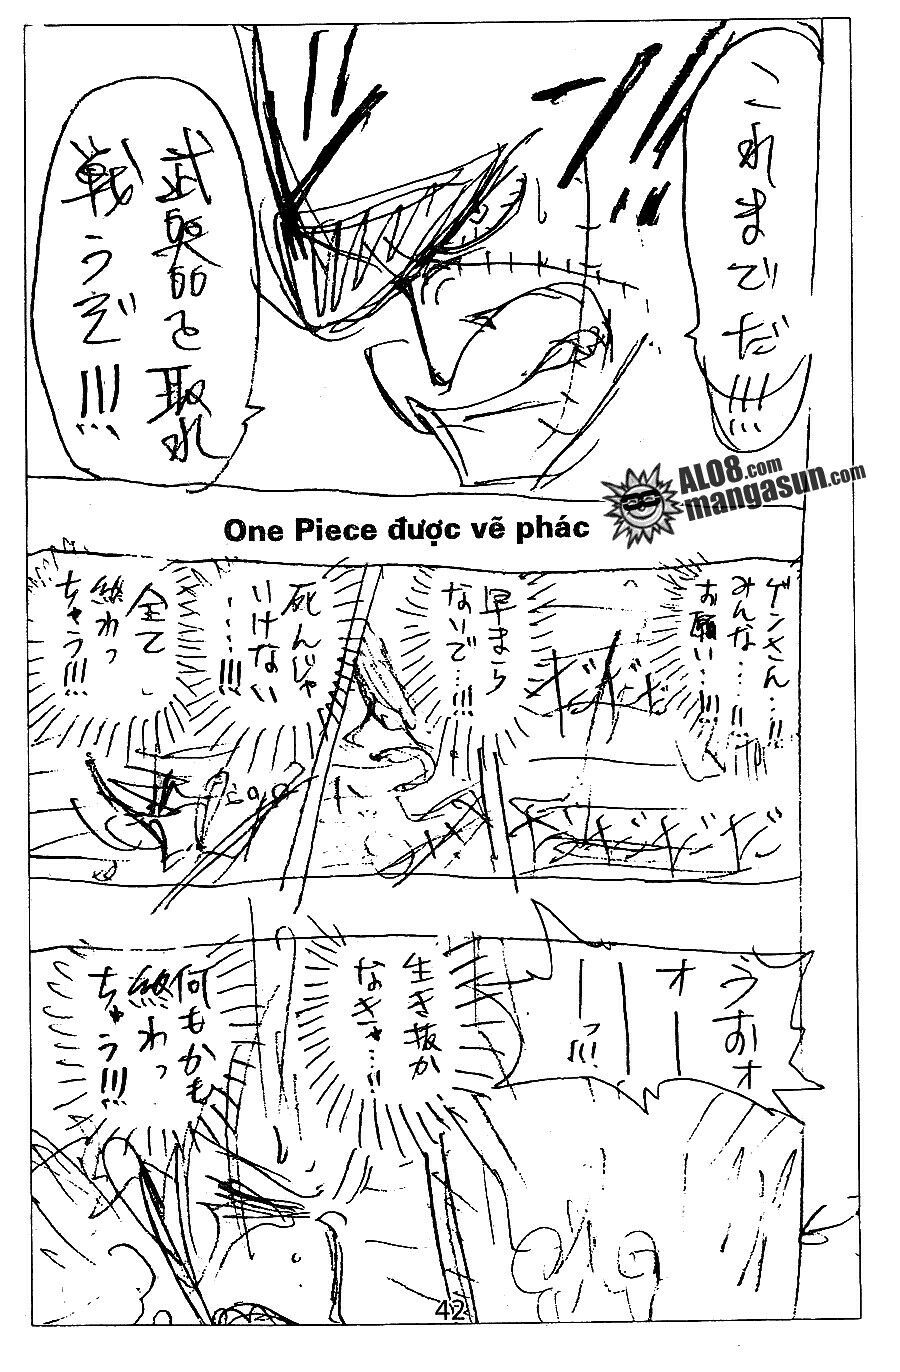 これまでだ!!!
武器を取れ
戦うぞ!!!
AL08.com
mangasun.com
One Piece được vẽ phác
ゲンさん…!!
みんな…!!
お願い…!!!
早まら
ないで…!!!
死んじゃ
いけない
…!!!
全て
終わっ
ちゃう!!!
うおォ
オー
ーーっ!!!
生き抜か
なきゃ…!!
何もかも
終わっ
ちゃう!!!
42